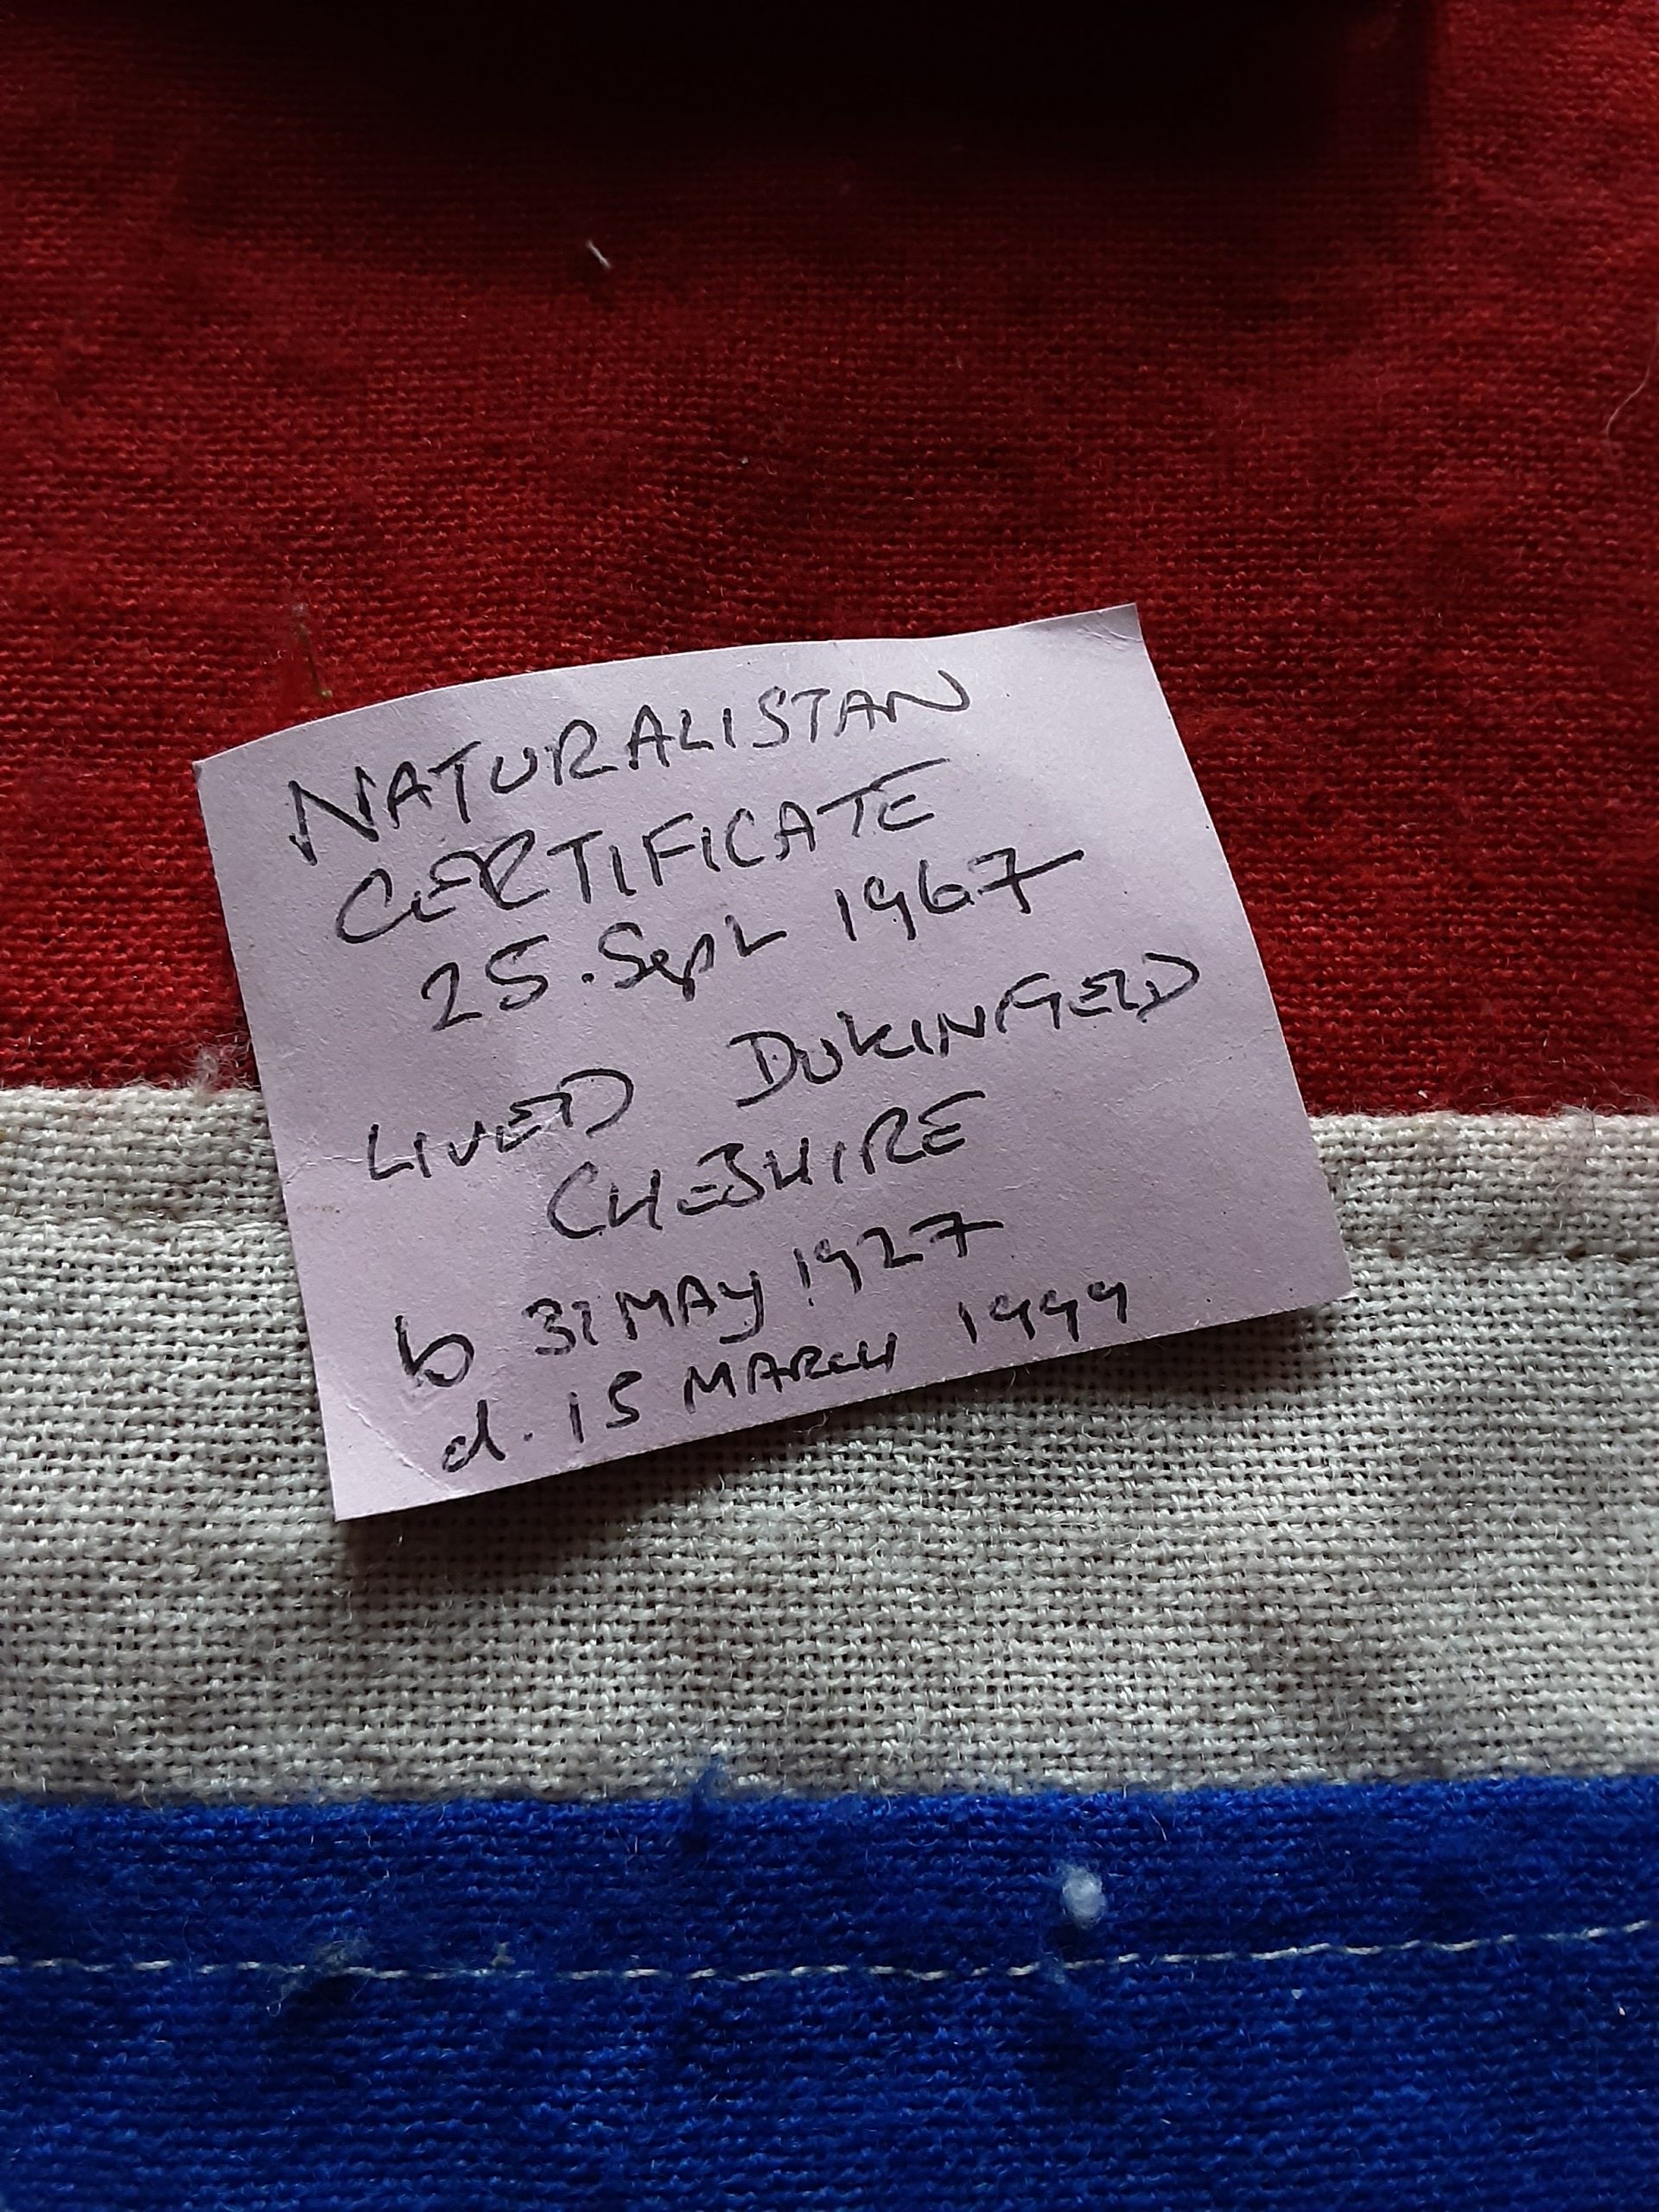 NATURALISTAN
CERTIFICATE
25. Sept 1967
LIVED DUKINFIELD
CHESHIRE
b 31 MAY 1927
d. 15 MARCH 1999